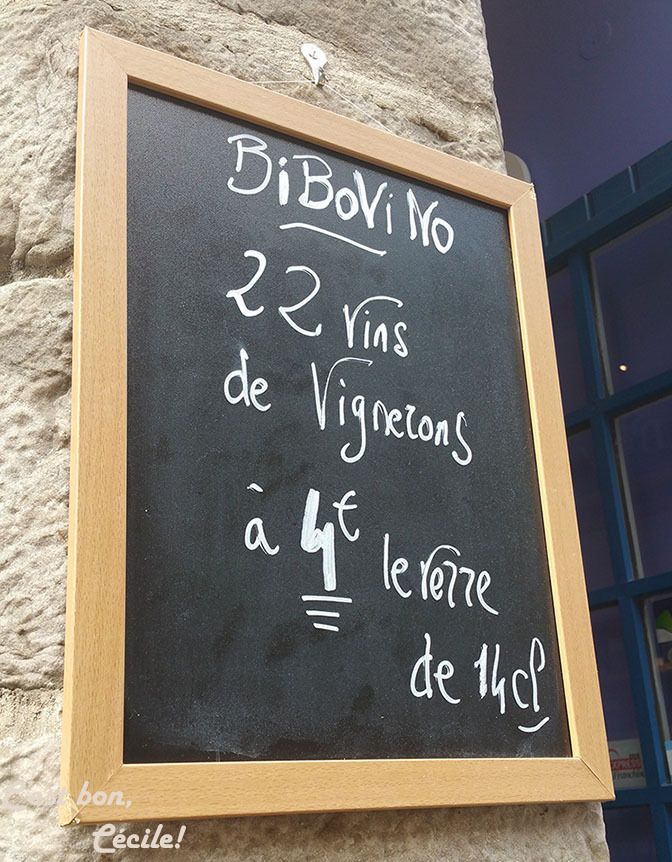 BiBoViNo
22 vins
de Vignerons
à 4€
le verre
de 14cl
C'est bon,
Cécile!